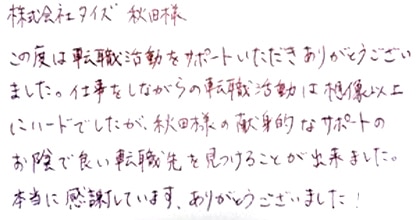 株式会社タイズ 秋田様
この度は転職活動をサポートいただきありがとうござい
ました。仕事をしながらの転職活動は想像以上
にハードでしたが、秋田様の献身的なサポートの
お陰で良い転職先を見つけることが出来ました。
本当に感謝しています、ありがとうございました!